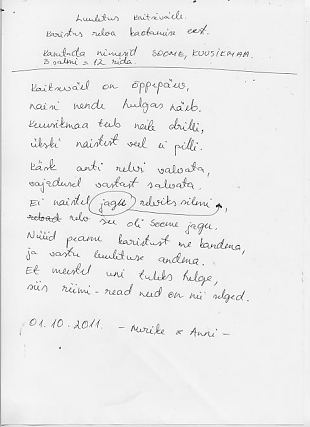 Luuletus Kaitseväele.
Karistus relva kaotamise eest.
Kasutada nimesid SOOME, KUUSIKMAA.
3 salmi = 12 rida.
Kaitseväel on õppepäev,
naisi nende hulgas näeb.
Kuusikmaa teeb neile drilli,
ükski naistest veel ei pilli.
Käsk anti relvi valvata,
vajadusel vastast salvata.
Ei naistel jagu relviks silmi,
relv see oli Soome jagu.
Nüüd peame karistust me kandma,
ja vastu luuletuse andma.
Et meestel uni tuleks helge,
siis riimi-read need on nii selged.
01.10.2011. - Anni -